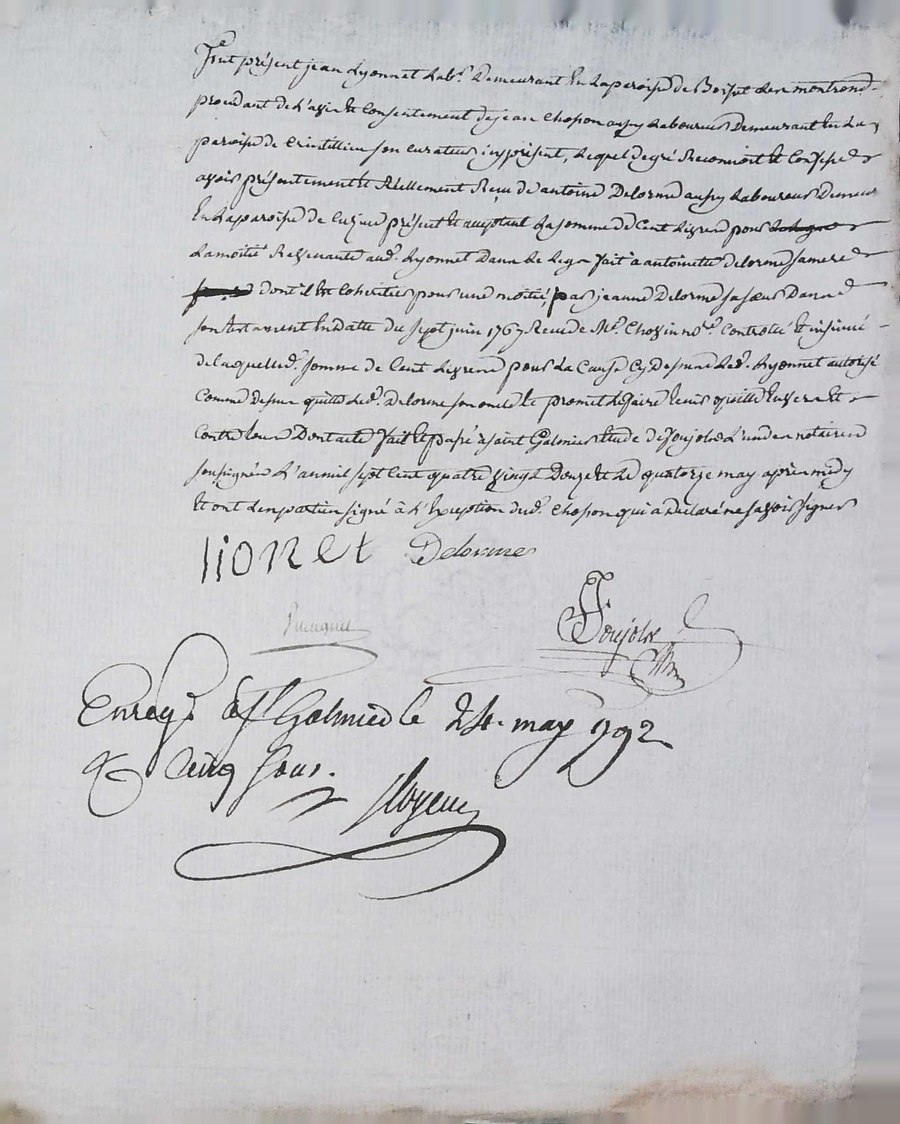 Fut présent jean Lyonnet Lab.r Demeurant En La paroisse de Boisset Les montrond
procedant de L'avis Et Consentement de jean Chopon aussy Laboureur Demeurant En La
paroisse de Crintillieu son curateur icy présent, Lequel de gré Reconnoit Et Confesse
avoir présentement Et Réellement Receu de antoine Delorme aussy Laboureur Demeur
En La paroisse de Cuzieu présent Et acceptant La somme de Cent Livres pour
La moitié Revenante aud.t Lyonnet Dans Le Legs fait à antoinette delorme sa mere
dont il Est Coheritier pour une moitié par jeanne Delorme sa sœur Dans
son testament En datte du sept juin 1767 Receu de M.e Chovin no.re Controllé Et insinué
de laquelle d.e somme de Cent Livres pour La Cause Cy Dessus Led.t Lyonnet autorisé
Comme dessus quitte Led.t Delorme son oncle Et promet Le faire tenir quitte Envers Et
Contre tous Dont acte fait Et passé à saint Galmier Etude de Soujolve L'un des notaires
soussignés L'an mil sept Cent quatre vingt Douze Et Le quatorze may après midy
Et ont Les parties signé à L'Exception dud.t Chopon qui a Declaré ne savoir signer
lionet Delorme
Enreg.é à S.t Galmier le 24. may 1792
R. Cinq sous.